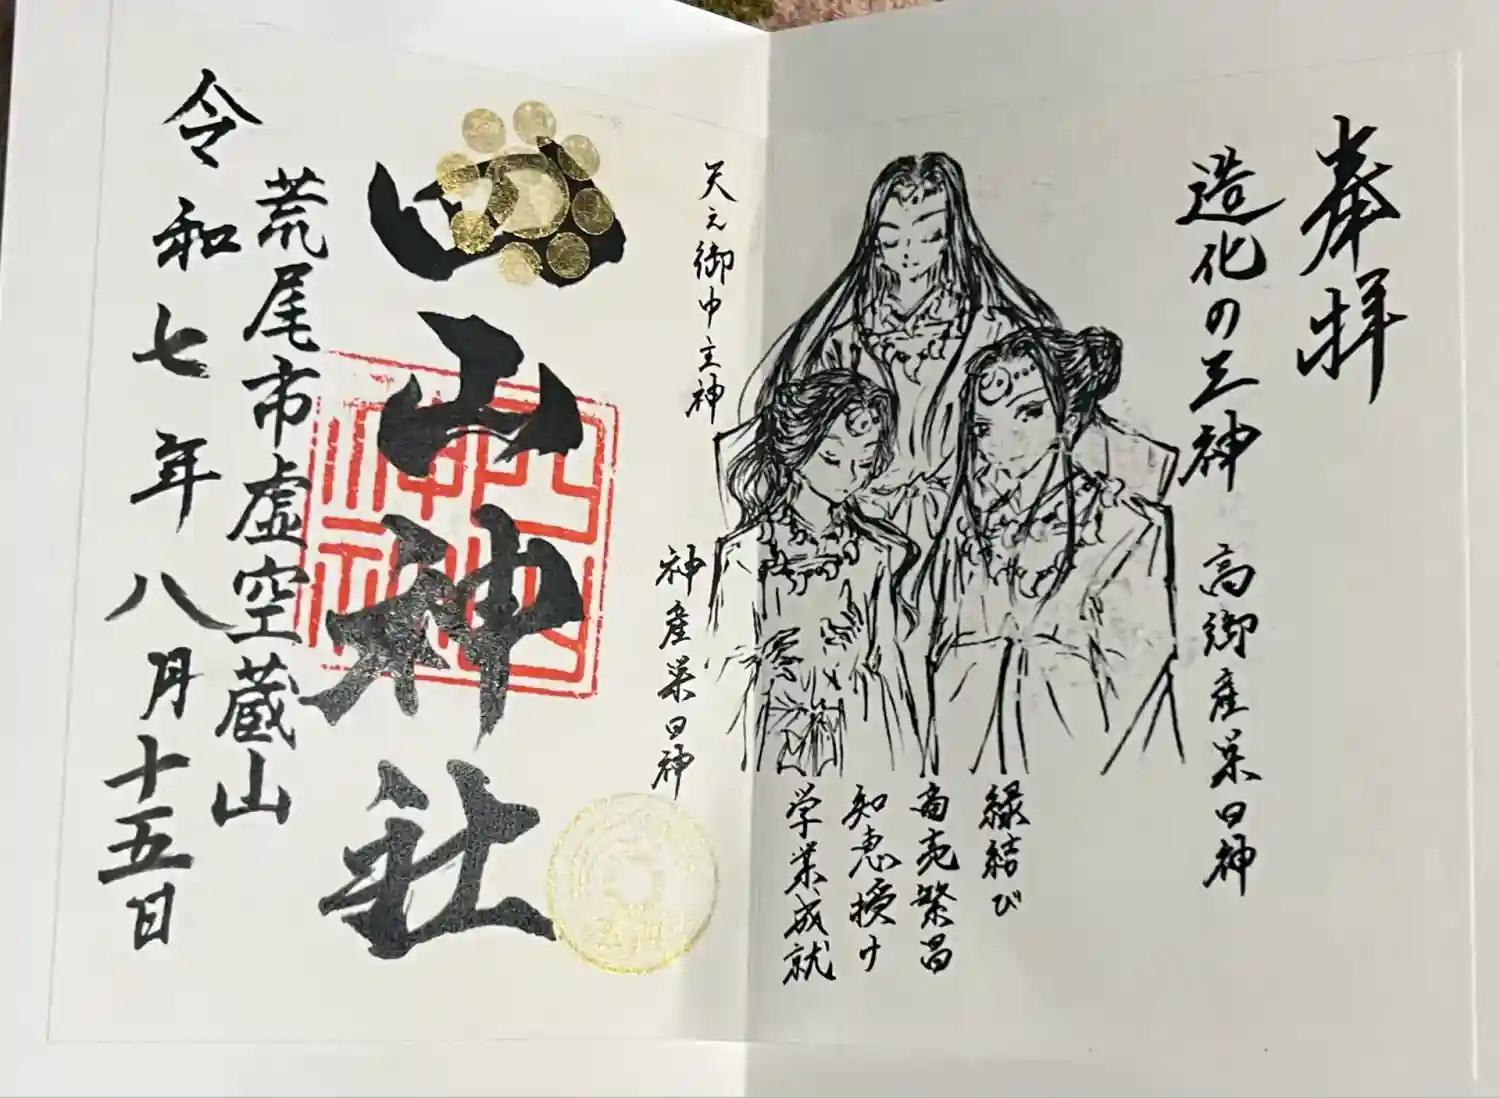 奉拝
造化の三神
高御産巣日神
縁結び
商売繁昌
知恵授け
学業成就
天之御中主神
神産巣日神
四山神社
荒尾市虚空蔵山
令和七年八月十五日